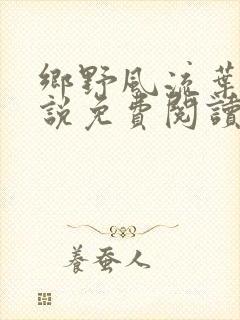 鄉野風流葉
說免費閱讀
養蚕人